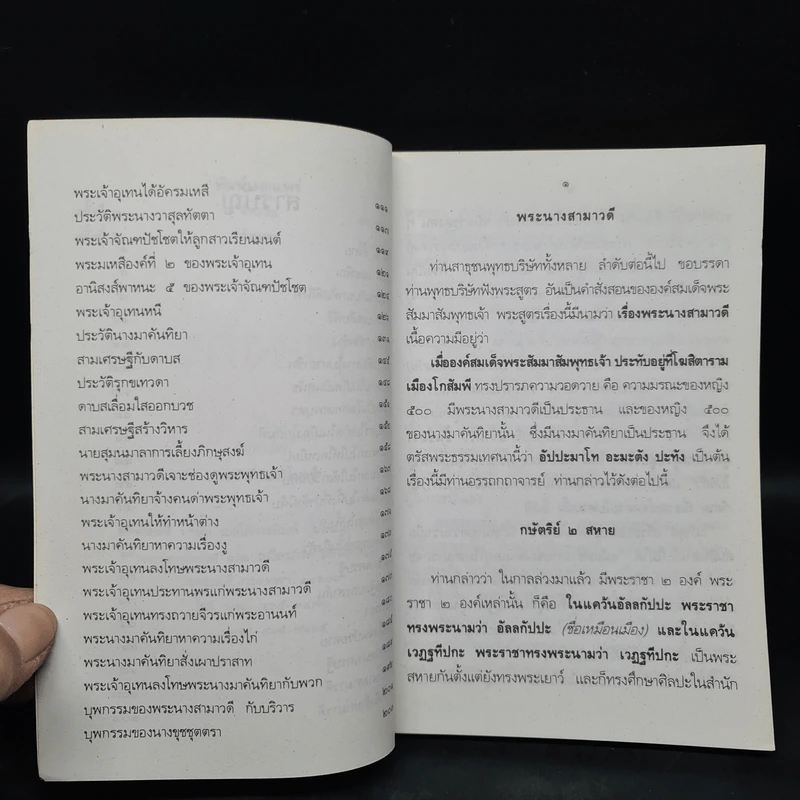 พระเจ้าอุเทนได้อัครมเหสี
ประวัติพระนางวาสุลทัตตา ๑๑๑
พระเจ้าจัณฑปัชโชตให้ลูกสาวเรียนมนต์ ๑๑๗
พระมเหสีองค์ที่ ๒ ของพระเจ้าอุเทน ๑๑๙
อานิสงส์พาหนะ ๕ ของพระเจ้าจัณฑปัชโชต ๑๒๑
พระเจ้าอุเทนหนี ๑๒๔
ประวัตินางมาคันทิยา ๑๒๖
สามเศรษฐีกับดาบส
ประวัติรุกขเทวดา
ดาบสเลื่อมใสออกบวช
สามเศรษฐีสร้างวิหาร
นายสุมนมาลาการเลี้ยงภิกษุสงฆ์
พระนางสามาวดีเจาะช่องดูพระพุทธเจ้า
นางมาคันทิยาจ้างคนด่าพระพุทธเจ้า
พระเจ้าอุเทนให้ทำหน้าต่าง
นางมาคันทิยาหาความเรื่องงู
พระเจ้าอุเทนลงโทษพระนางสามาวดี
พระเจ้าอุเทนประทานพรแก่พระนางสามาวดี
พระเจ้าอุเทนทรงถวายจีวรแก่พระอานนท์
พระนางมาคันทิยาหาความเรื่องไก่
พระนางมาคันทิยาสั่งเผาปราสาท
พระเจ้าอุเทนลงโทษพระนางมาคันทิยากับพวก
บุพกรรมของพระนางสามาวดี กับบริวาร
บุพกรรมของนางขุชชุตตรา
๑
พระนางสามาวดี
ท่านสาธุชนพุทธบริษัททั้งหลาย ลำดับต่อนี้ไป ขอบรรดา
ท่านพุทธบริษัทฟังพระสูตร อันเป็นคำสั่งสอนขององค์สมเด็จพระ
สัมมาสัมพุทธเจ้า พระสูตรเรื่องนี้มีนามว่า เรื่องพระนางสามาวดี
เนื้อความมีอยู่ว่า
เมื่อองค์สมเด็จพระสัมมาสัมพุทธเจ้า ประทับอยู่ที่โฆสิตาราม
เมืองโกสัมพี ทรงปรารภความวอดวาย คือ ความมรณะของหญิง
๕๐๐ มีพระนางสามาวดีเป็นประธาน และของหญิง ๕๐๐
ของนางมาคันทิยานั้น ซึ่งมีนางมาคันทิยาเป็นประธาน จึงได้
ตรัสพระธรรมเทศนานี้ว่า อัปปะมาโท อะมะตัง ปะทัง เป็นต้น
เรื่องนี้มีท่านอรรถกถาจารย์ ท่านกล่าวไว้ดังต่อไปนี้
กษัตริย์ ๒ สหาย
ท่านกล่าวว่า ในกาลล่วงมาแล้ว มีพระราชา ๒ องค์ พระ
ราชา ๒ องค์เหล่านั้น ก็คือ ในแคว้นอัลลกัปปะ พระราชา
ทรงพระนามว่า อัลลกัปปะ (ชื่อเหมือนเมือง) และในแคว้น
เวฏฐทีปกะ พระราชาทรงพระนามว่า เวฏฐทีปกะ เป็นพระ
สหายกันตั้งแต่ยังทรงพระเยาว์ และก็ทรงศึกษาศิลปะในสำนัก